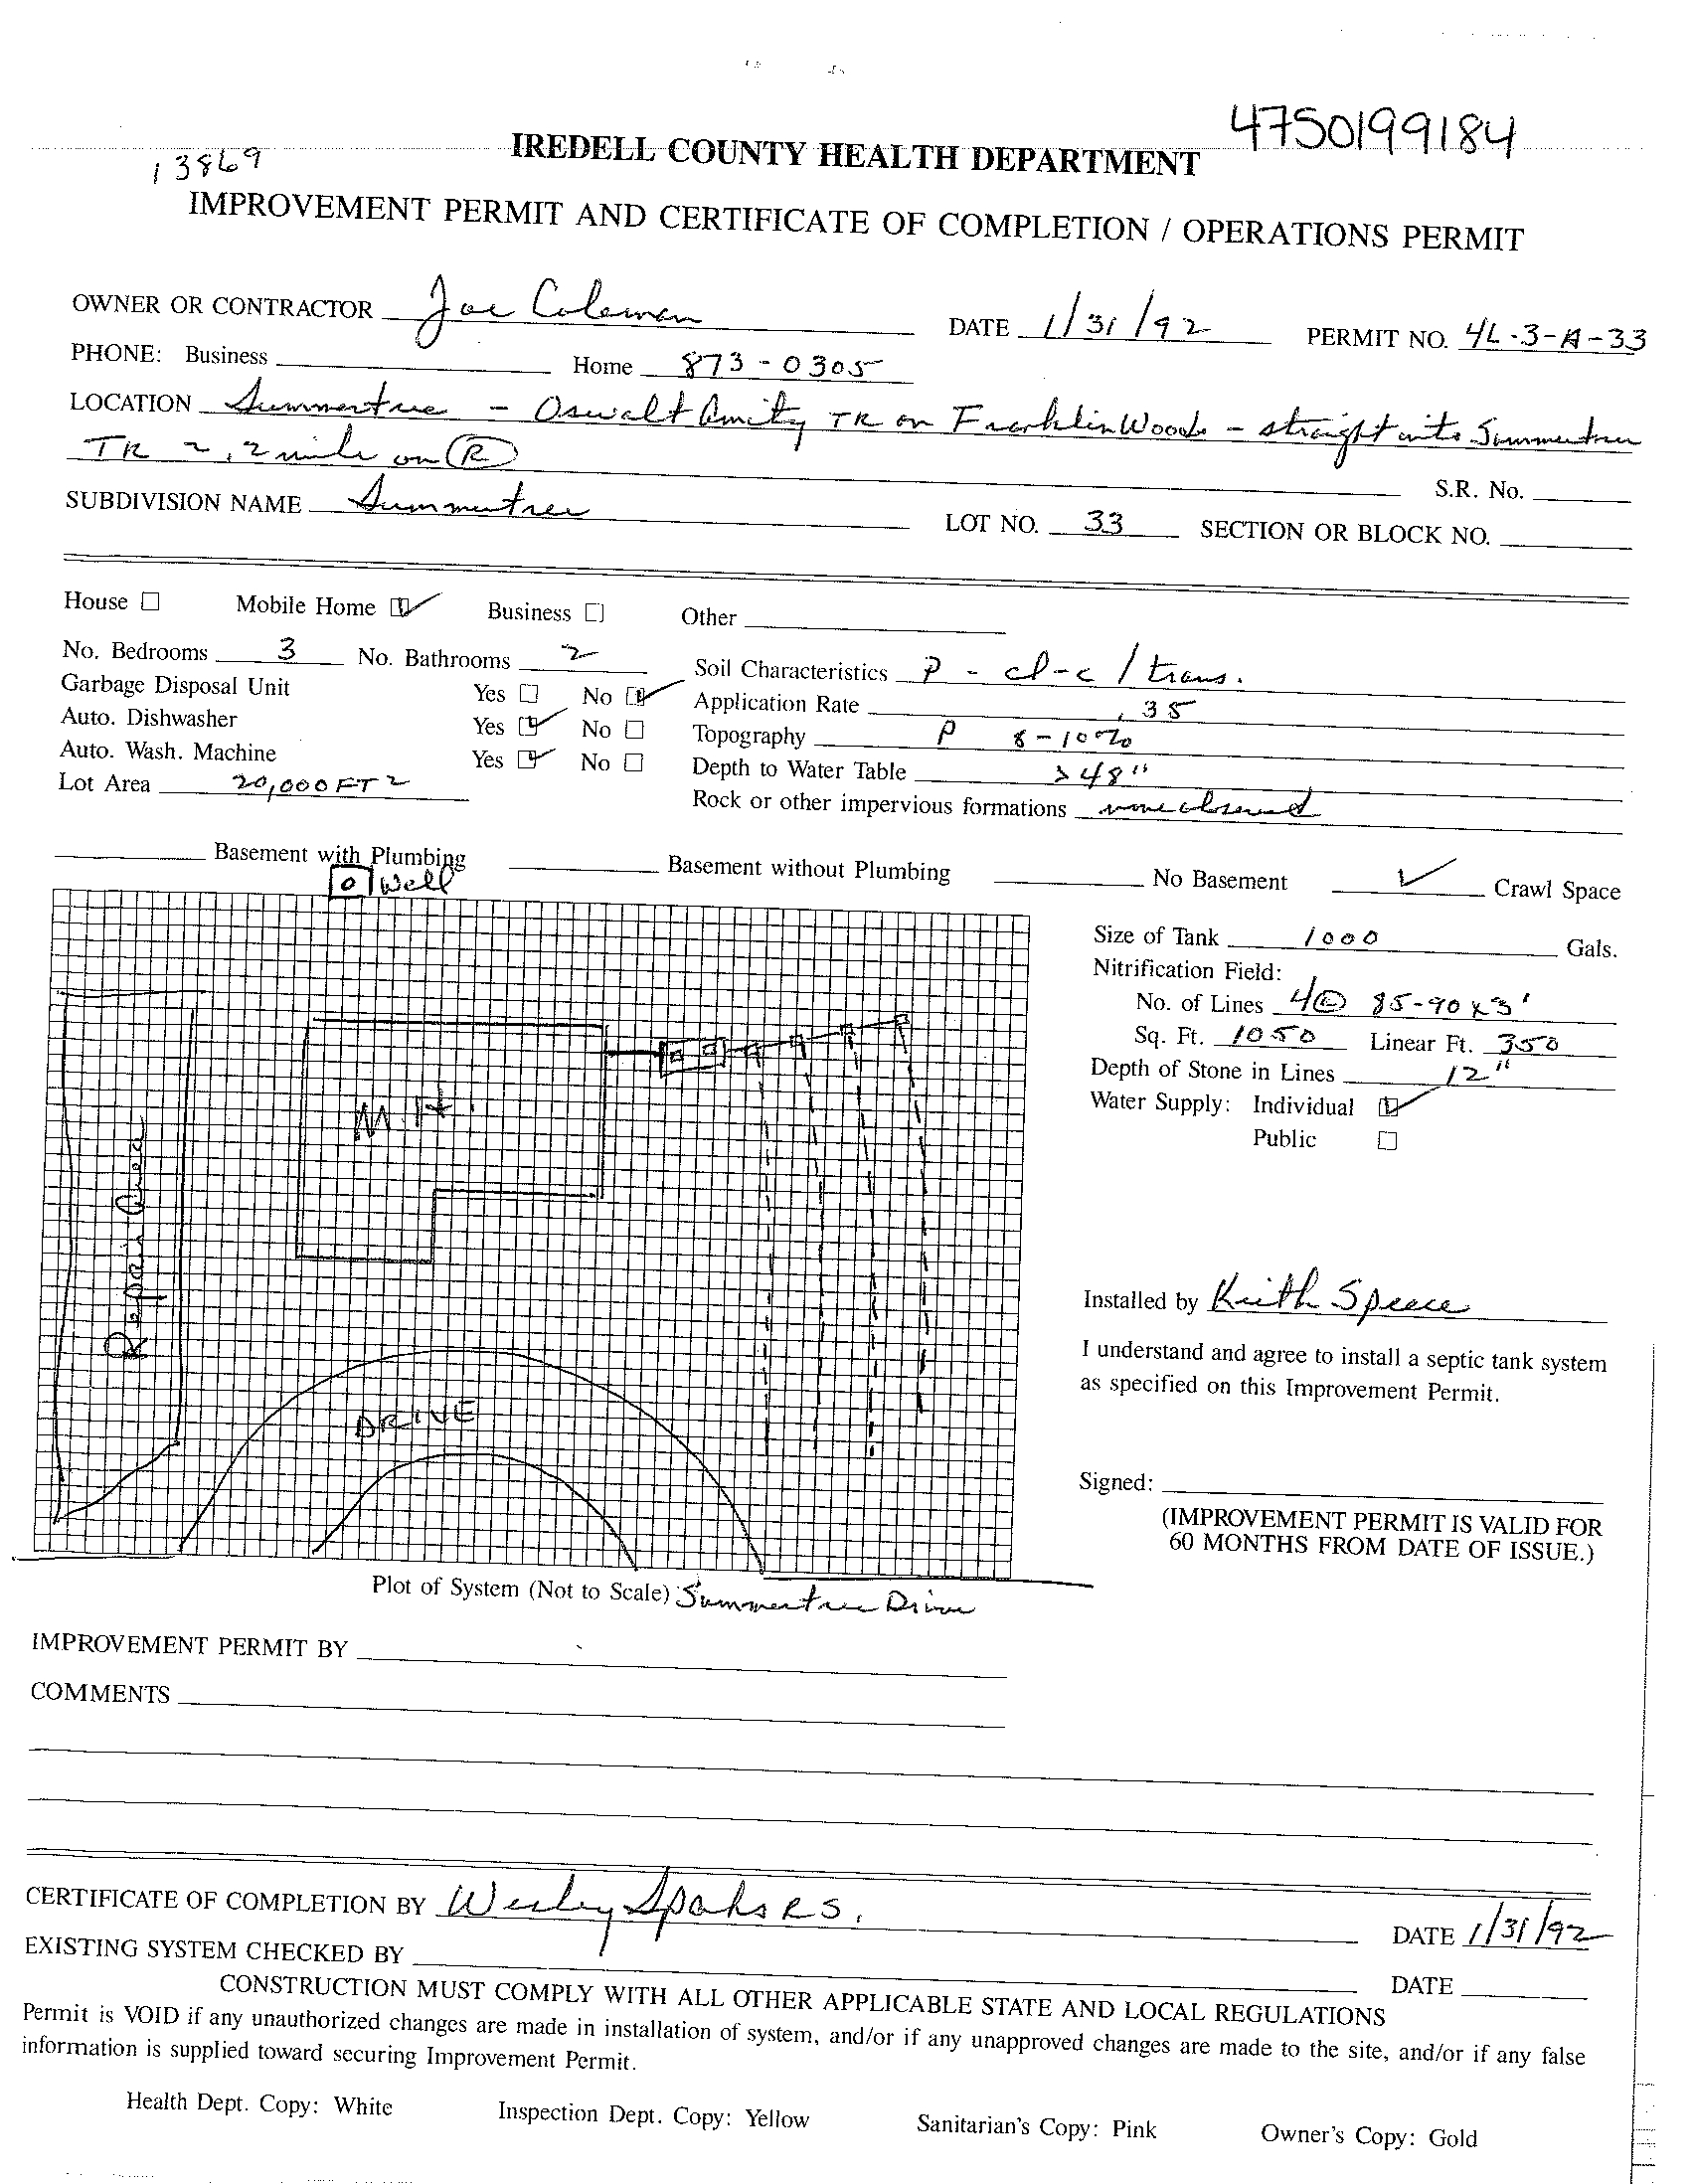 4750199184
13869
IREDELL COUNTY HEALTH DEPARTMENT
IMPROVEMENT PERMIT AND CERTIFICATE OF COMPLETION / OPERATIONS PERMIT
OWNER OR CONTRACTOR Joe Coleman DATE 1/31/92 PERMIT NO. 4L-3-A-33
PHONE: Business Home 873-0305
LOCATION Summertree - Oswalt Amity TR on Franklin Woods - straight into Summertree
TR ~ .2 mile on (R)
S.R. No.
SUBDIVISION NAME Summertree LOT NO. 33 SECTION OR BLOCK NO.
House Mobile Home ✓ Business Other
No. Bedrooms 3 No. Bathrooms 2 Soil Characteristics P - cl-c / trans.
Garbage Disposal Unit Yes No ✓ Application Rate .35
Auto. Dishwasher Yes ✓ No Topography P 8-10%
Auto. Wash. Machine Yes ✓ No Depth to Water Table >48"
Lot Area 20,000 FT2 Rock or other impervious formations none observed
Basement with Plumbing Basement without Plumbing No Basement ✓ Crawl Space
Well
Size of Tank 1000 Gals.
Nitrification Field:
No. of Lines 4@ 85-90 x 3'
Sq. Ft. 1050 Linear Ft. 350
Depth of Stone in Lines 12"
Water Supply: Individual ✓
Public
M.H.
Repair Area
DRIVE
Installed by Keith Speece
I understand and agree to install a septic tank system
as specified on this Improvement Permit.
Signed:
(IMPROVEMENT PERMIT IS VALID FOR
60 MONTHS FROM DATE OF ISSUE.)
Plot of System (Not to Scale) Summertree Drive
IMPROVEMENT PERMIT BY
COMMENTS
CERTIFICATE OF COMPLETION BY Wesley R.S. DATE 1/31/92
EXISTING SYSTEM CHECKED BY DATE
CONSTRUCTION MUST COMPLY WITH ALL OTHER APPLICABLE STATE AND LOCAL REGULATIONS
Permit is VOID if any unauthorized changes are made in installation of system, and/or if any unapproved changes are made to the site, and/or if any false
information is supplied toward securing Improvement Permit.
Health Dept. Copy: White Inspection Dept. Copy: Yellow Sanitarian's Copy: Pink Owner's Copy: Gold